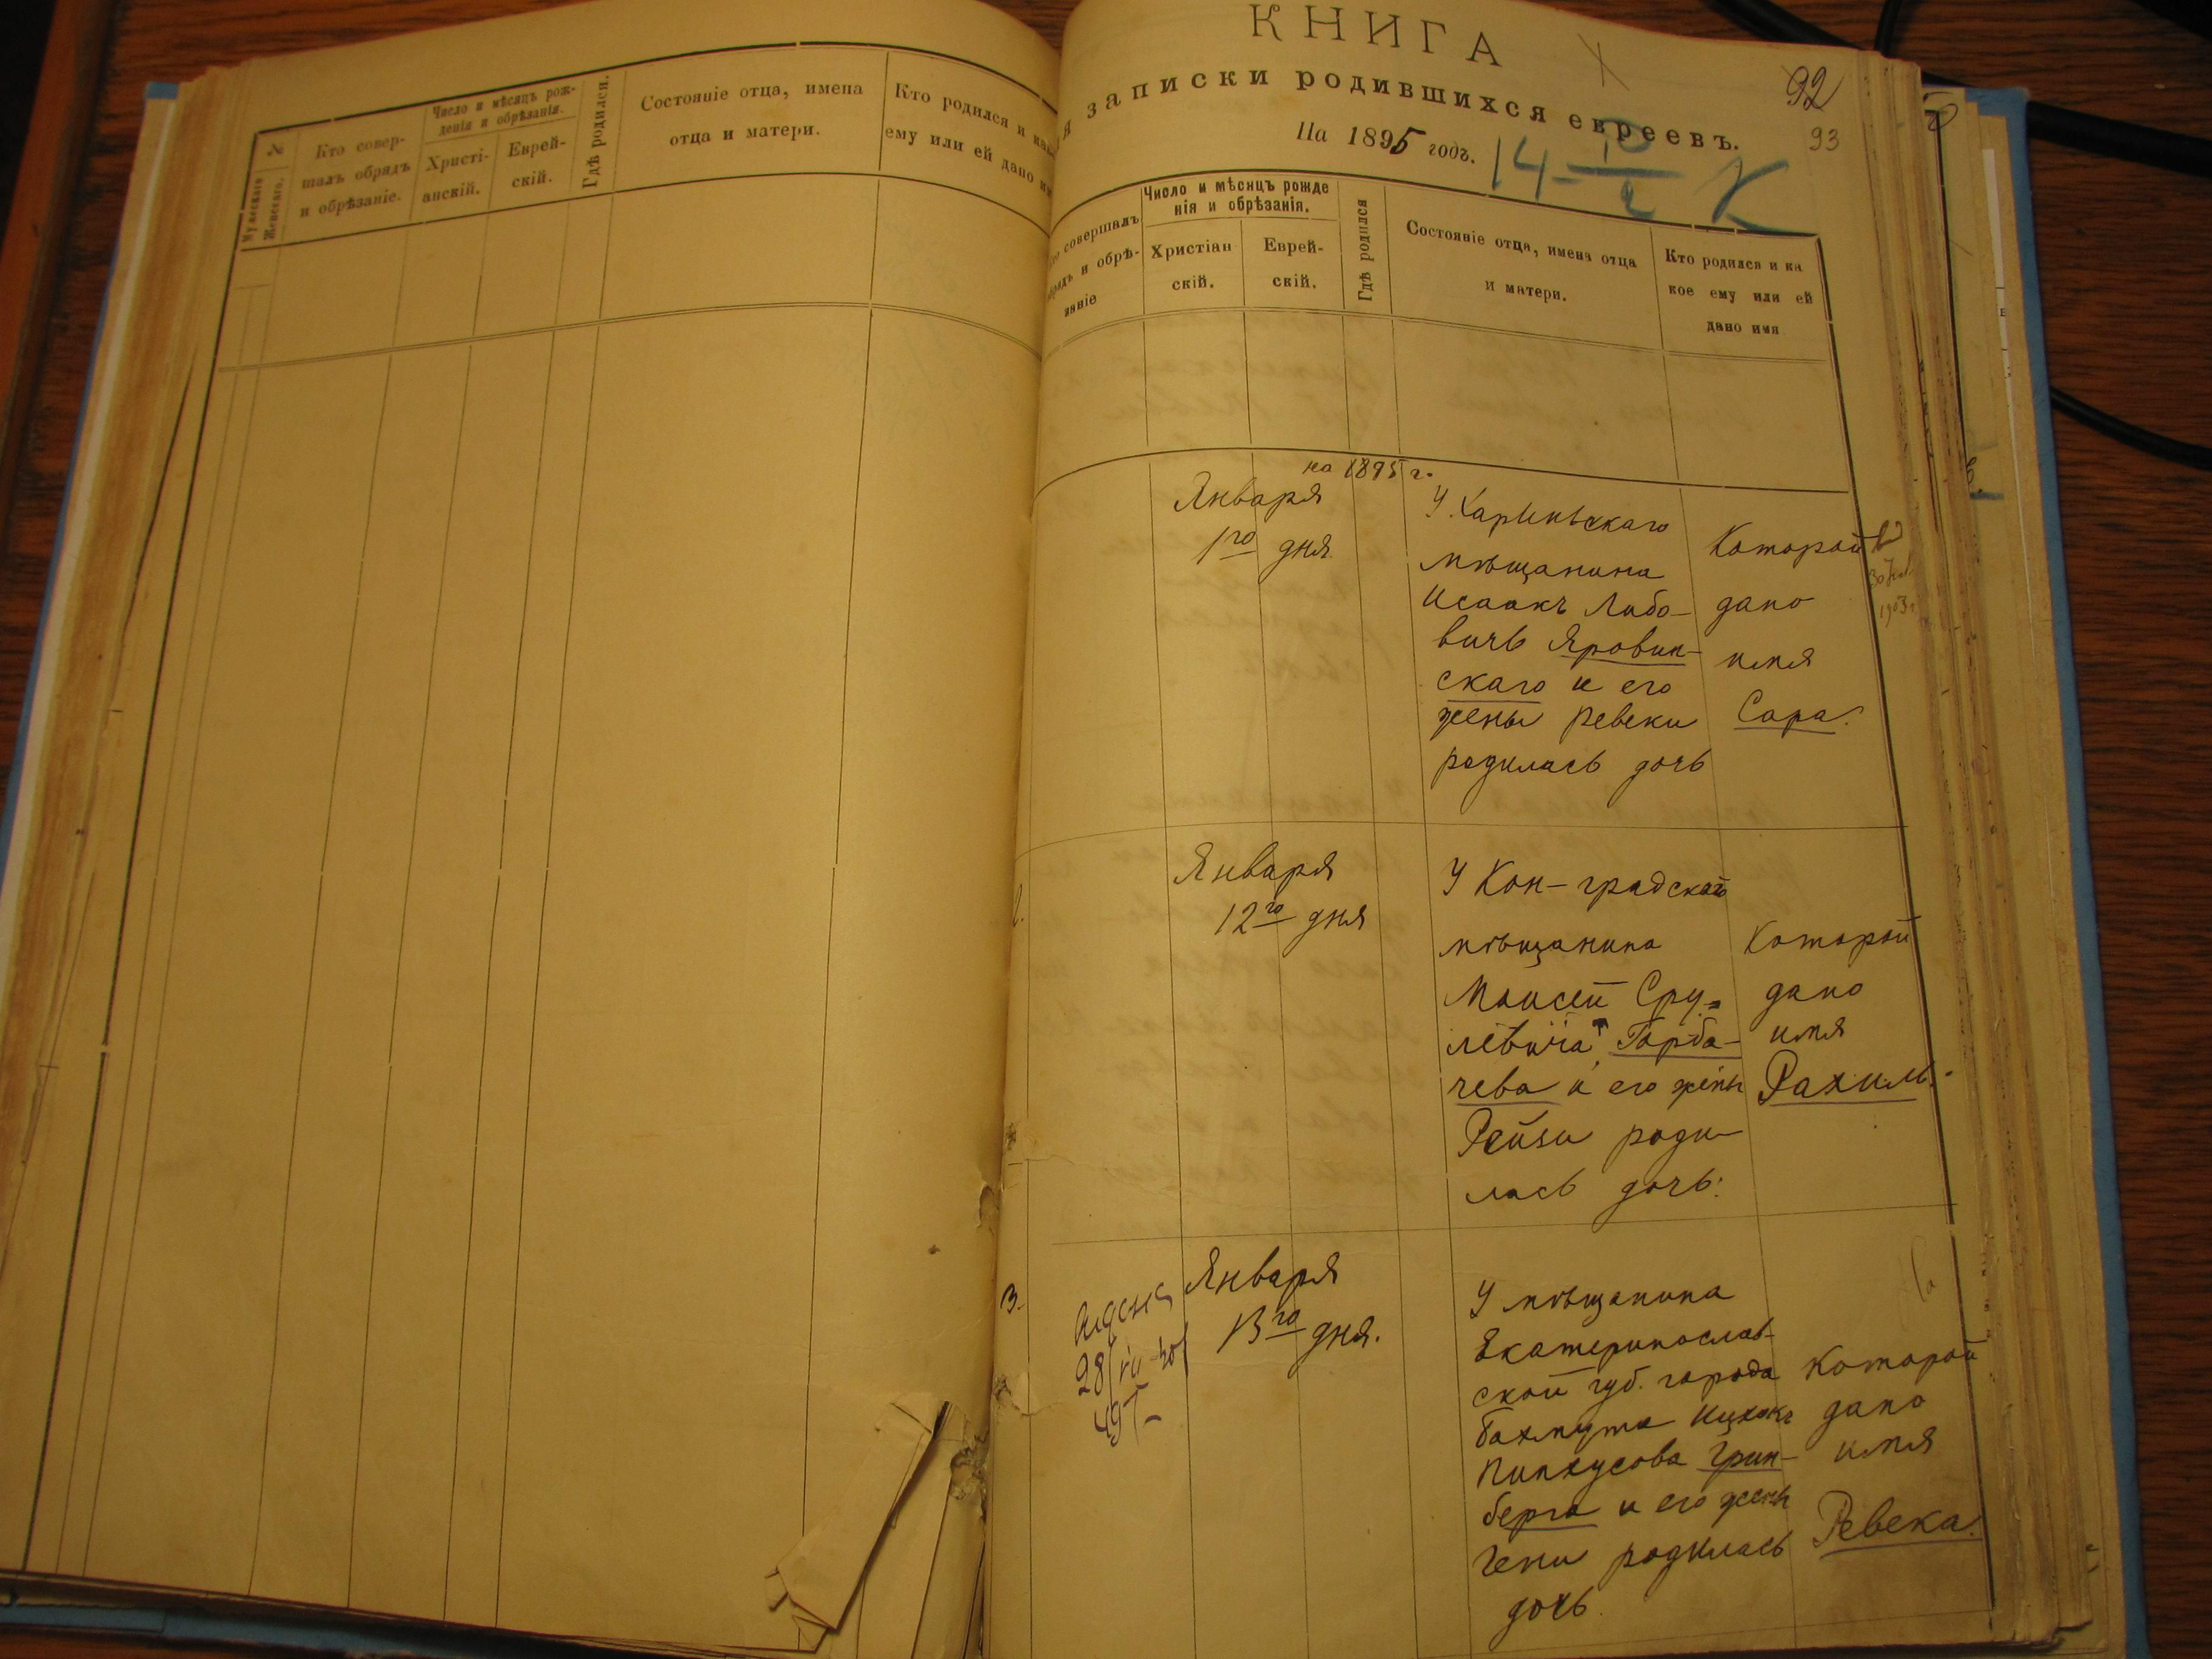 №
Мужескаго
Женскаго.
Кто совер-
шалъ обрядъ
и обрѣзаніе.
Число и мѣсяцъ рож-
денія и обрѣзанія.
Христі-
анскій.
Еврей-
скій.
Гдѣ родился.
Состояніе отца, имена
отца и матери.
Кто родился и
ему или ей дано
КНИГА
записки родившихся евреевъ.
На 1895 годъ.
92
93
14
совершалъ
и обрѣ-
Число и мѣсяцъ рожде
нія и обрѣзанія.
Христіан
скій.
Еврей-
скій.
Гдѣ родился
Состояніе отца, имена отца
и матери.
Кто родился и ка
кое ему или ей
дано имя
на 1895 г.
Января
1го дня
У
мѣщанина
Исаакъ Либо-
вичъ Яровин-
скаго и его
жены Ревеки
родилась дочь
Которой
дано
имя
Сара.
1903 г
Января
12го дня
У Кон-градскаго
мѣщанина
Моисей Сру-
левича Горба-
чева и его жены
Рейзи роди-
лась дочь:
Которой
дано
имя
Рахиль.
3.
28
Января
13го дня.
У мѣщанина
Екатеринослав-
ской губ. города
Бахмута Ицхокъ
Пинхусова Грин-
берга и его жены
Гени родилась
дочь.
Которой
дано
имя
Ревека.